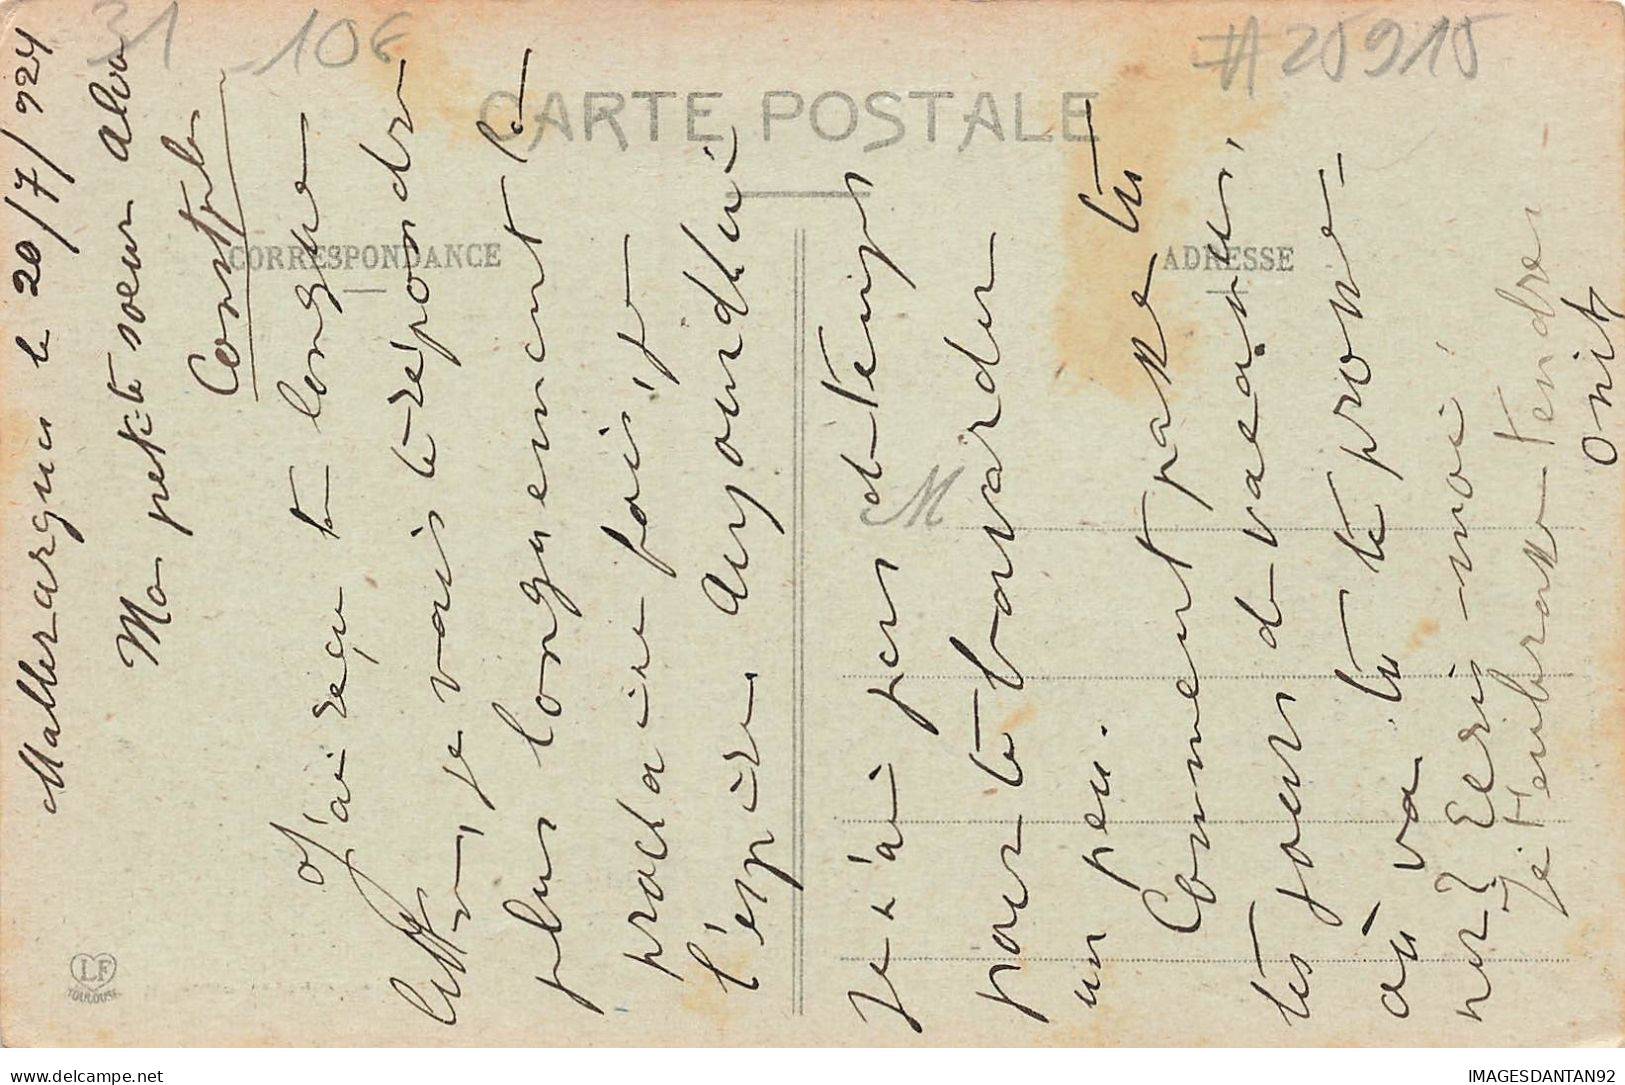 31 10€ #25915
CARTE POSTALE
CORRESPONDANCE
ADRESSE
le 20/7/924
Ma petite soeur
J'ai reçu ta longue
lettre, je vais te répondre
plus longuement la
prochaine fois, je
l'espère. Aujourd'hui
je n'ai pas le temps
pour te bavarder
un peu.
Comment passe tu
tes jours de vacances,
où va tu te prome-
ner? Ecris-moi.
Je t'embrasse tendre
M
LF
TOULOUSE
delcampe.net
IMAGESDANTAN92